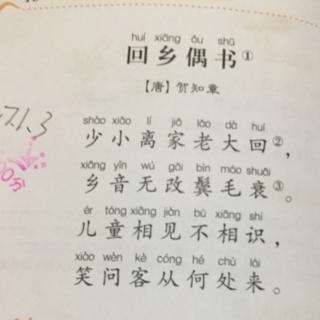 huí xiāng ǒu shū
回乡偶书①
【唐】贺知章
shào xiǎo lí jiā lǎo dà huí
少小离家老大回②，
xiāng yīn wú gǎi bìn máo shuāi
乡音无改鬓毛衰③。
ér tóng xiāng jiàn bù xiāng shí
儿童相见不相识，
xiào wèn kè cóng hé chù lái
笑问客从何处来。
7.1.3